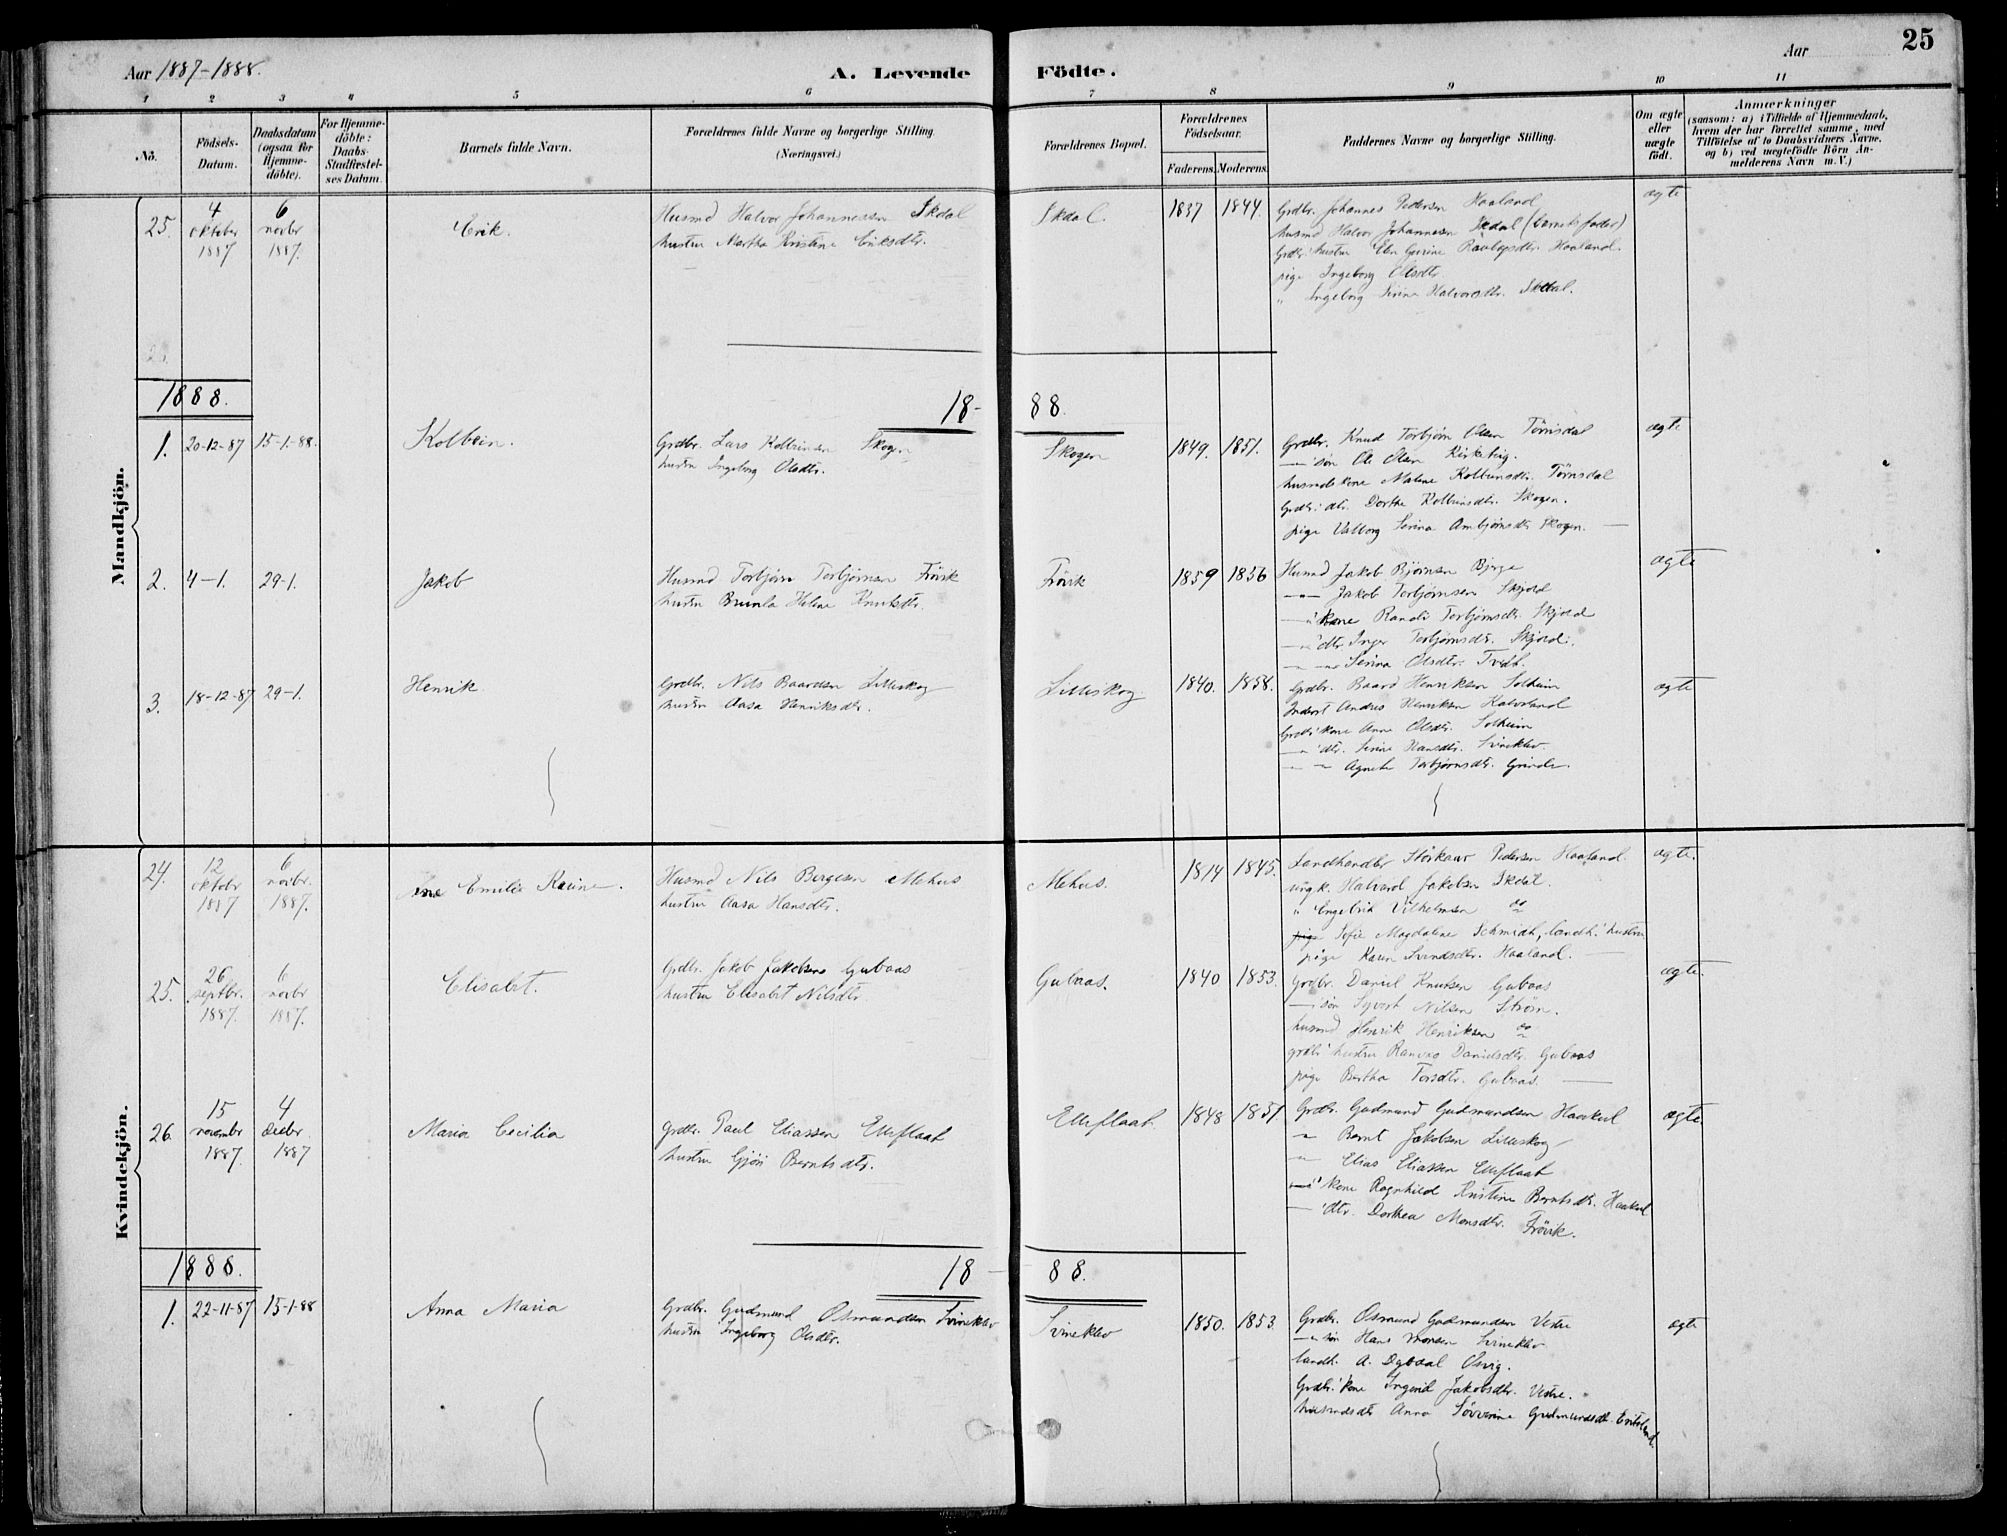 Aar 1887-1888.
A. Levende Födte.
Aar
25
1 2 3 4 5 6 7 8 9 10 11
No.
Födsels-Datum.
Daabsdatum (ogsaa for Hjemme-döbte).
For Hjemme-döbte: Daabs-Stadfæstel-ses Datum.
Barnets fulde Navn.
Forældrenes fulde Navne og borgerlige Stilling. (Næringsvei.)
Forældrenes Bopæl.
Forældrenes Födselsaar.
Faderens. Moderens.
Faddernes Navne og borgerlige Stilling.
Om ægte eller uægte födt.
Anmærkninger
(saasom: a) i Tilfælde af Hjemmedaab,
hvem der har forrettet samme, med
Tilföielse af to Daabsvidners Navne,
og b) ved uægtefödte Börn An-
melderens Navn m.V.)
Mandkjön.
25. 4 oktober 1887 6 novbr 1887. Erik. Husmd Halvor Johannesen Skdal
hustru Martha Kristine Eriksdtr.
Skdal. 1837 1844. ægte
Grdbr. Johannes Pedersen Haaland
husmd Halvor Johannesen Skdal (barnets fader)
Grdbr' hustru Elen Gurine Haaland.
pige Ingeborg Olsdtr.
" Ingeborg Serine Halvorsdtr. Skdal.
1888. 18-88.
1. 20-12-87 15-1-88. Kolbein. Grdbr. Lars Kolbeinsen Skogen
hustru Ingeborg Olsdtr.
Skogen 1849. 1851. ægte
Grdbr. Knud Torbjørn Olsen Tørrisdal
—" søn Ole Olsen
husmdskone Malene Kolbeinsdtr. Tørrisdal
Grdbr.' dtr. Dorthe Kolbeinsdtr. Skogen.
pige Valborg Serine Arnbjørnsdtr Skogen.
2. 4-1. 29-1. Jakob Husmd Torbjørn Torbjørnsen Frövik
hustru Helene Knutsdtr.
Frövik 1859 1856 ægte
Husmd Jakob Bjørnsen
—"— Jakob Torbjørnsen Skjold
—"kone Randi Torbjørnsdtr. Skjold
—"dtr. Inger Torbjørnsdtr. Skjold.
—"— Serina Olsdtr.
3. 18-12-87 29-1. Henrik Grdbr. Nils Baardsen Lilleskog
hustru Aasa Henriksdtr.
Lilleskog 1840. 1858. ægte
Grdbr. Baard Henriksen Solheim
Inderst Andres Henriksen
Grdbr' kone Anne Olsdtr. Solheim
—"dtr. Serine Hansdtr. Svineklev
—"— Agnete Torbjørnsdtr. Grinde.
Kvindekjön.
24. 12 oktobr 1887 6 novbr. 1887. Ane Emilie Rasine. Husmd Nils Børgesen Mehus
hustru Aasa Hansdtr.
Mehus. 1814 1845. ægte.
Landhandler Storkaar Pedersen Haaland.
ungk. Halvard Jakobsen Skdal.
" Engelbrik Vilhelmsen do
pige Sofie Magdalene Schmidt, landh.' hustru
pige Karen Svendsdtr. Haaland.
25. 26 septbr. 1887. 6 novbr 1887. Elisabet. Grdbr. Jakob Jakobsen Gubaas
hustru Elisabet Nilsdtr.
Gubaas. 1840 1853. ægte.
Grdbr. Daniel Knutsen Gubaas
—" søn Syvert Nilsen Strøm.
husmd Henrik Henriksen do
grdbr' hustru Danielsdtr. Gubaas
pige Bertha Torsdtr. Gubaas.
26. 15 novembr 1887. 4 decbr 1887 Maria Cecilia Grdbr. Paul Eliassen Ellefslaat
hustru Gjøri Berntsdtr.
Ellefslaat. 1848 1851 ægte.
Grdbr. Gudmund Gudmundsen
—"— Bernt Jakobsen Lilleskog
—"— Elias Eliassen
—"' kone Ragnhild Kristine Berntsdtr.
—' dtr. Dorthea Monsdtr. Frövik.
1888. 18-88.
1. 22-11-87 15-1-88 Anna Maria Grdbr. Gudmund Osmundsen Svineklev
hustru Ingeborg Olsdtr.
Svineklev 1850. 1853. ægte
Grdbr. Osmund Gudmundsen Vestre
—" søn Hans Monsen Svineklev
landh. A. Dybdal Ølvig.
Grdbr.' kone Ingerid Jakobsdtr. Vestre.
husmdsdtr Anna Søverine Gudmundsdtr.